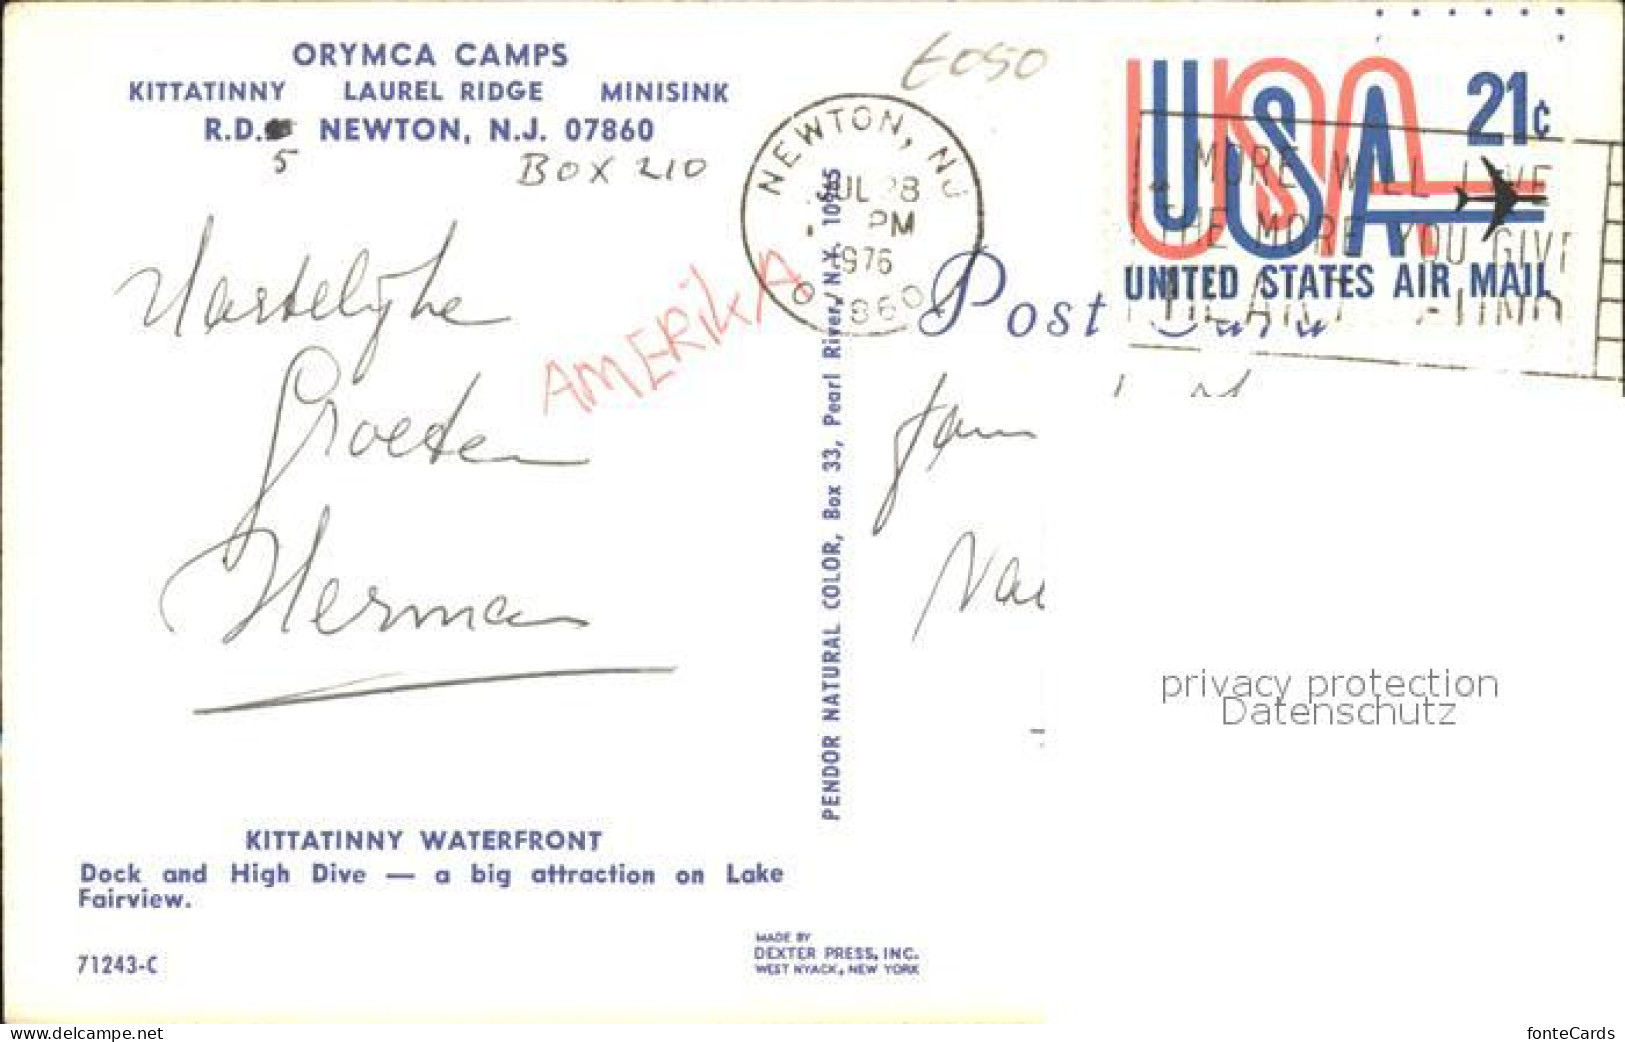 ORYMCA CAMPS
KITTATINNY LAUREL RIDGE MINISINK
R.D. NEWTON, N.J. 07860
5 BOX 210
Hartelijke
Groeten
Herman
AMERikA
6050
NEWTON, NJ
JUL 28
PM
1976
07860
USA 21¢
UNITED STATES AIR MAIL
MORE WILL LIVE
THE MORE YOU GIVE
HEART FUND
Post Card
Fam
PENDOR NATURAL COLOR, Box 33, Pearl River, N.Y. 10965
privacy protection
Datenschutz
KITTATINNY WATERFRONT
Dock and High Dive — a big attraction on Lake
Fairview.
71243-C
MADE BY
DEXTER PRESS, INC.
WEST NYACK, NEW YORK
www.delcampe.net
fonteCards